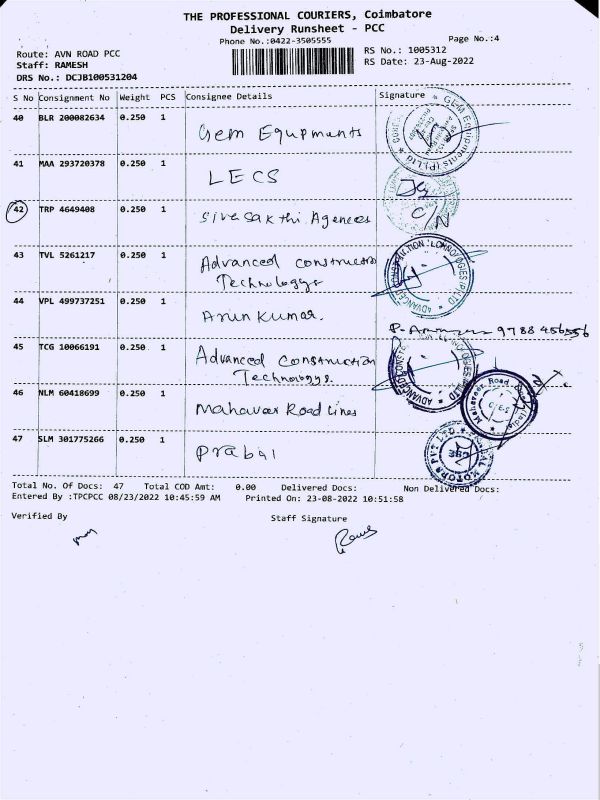 THE PROFESSIONAL COURIERS, Coimbatore
Delivery Runsheet - PCC
Phone No.:0422-3505555
Page No.:4
Route: AVN ROAD PCC
RS No.: 1005312
Staff: RAMESH
RS Date: 23-Aug-2022
DRS No.: DCJB100531204
S No Consignment No Weight PCS Consignee Details Signature
40 BLR 200082634 0.250 1 Gem Equpments
41 MAA 293720378 0.250 1 LECS
42 TRP 4649408 0.250 1 Sivesakthi Agences C/N
43 TVL 5261217 0.250 1 Advanced construction
Technologys
44 VPL 499737251 0.250 1 Arun Kumar. 9788 456556
45 TCG 10066191 0.250 1 Advanced Construction
Technologys.
46 NLM 60418699 0.250 1 Mahavar Road Lines
47 SLM 301775266 0.250 1 Prabal
Total No. Of Docs: 47 Total COD Amt: 0.00 Delivered Docs: Non Delivered Docs:
Entered By :TPCPCC 08/23/2022 10:45:59 AM Printed On: 23-08-2022 10:51:58
Verified By Staff Signature